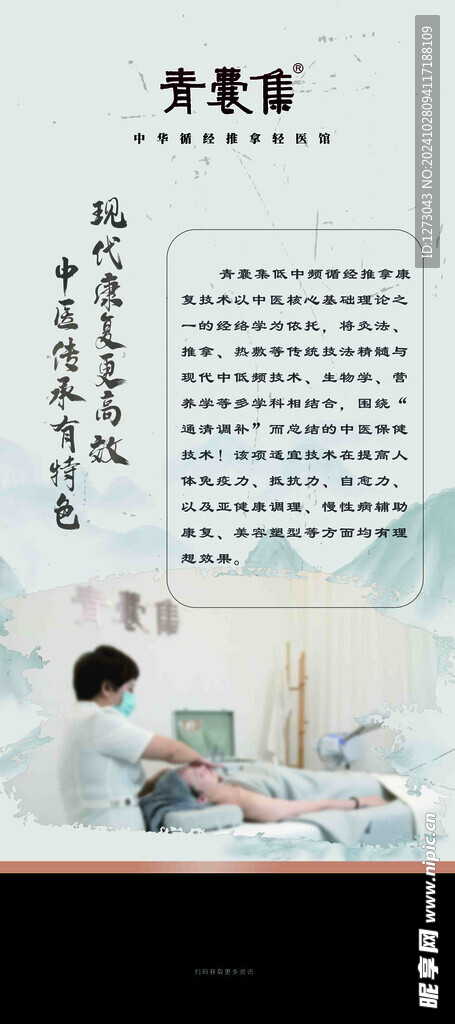 青囊集®
中华循经推拿轻医馆
现代康复更高效
中医传承有特色
青囊集低中频循经推拿康
复技术以中医核心基础理论之
一的经络学为依托，将灸法、
推拿、热敷等传统技法精髓与
现代中低频技术、生物学、营
养学等多学科相结合，围绕“
通清调补”而总结的中医保健
技术！该项适宜技术在提高人
体免疫力、抵抗力、自愈力、
以及亚健康调理、慢性病辅助
康复、美容塑型等方面均有理
想效果。
青囊集
扫码获取更多资讯
ID:1273043 NO:20241028094117188109
昵享网 www.nipic.cn